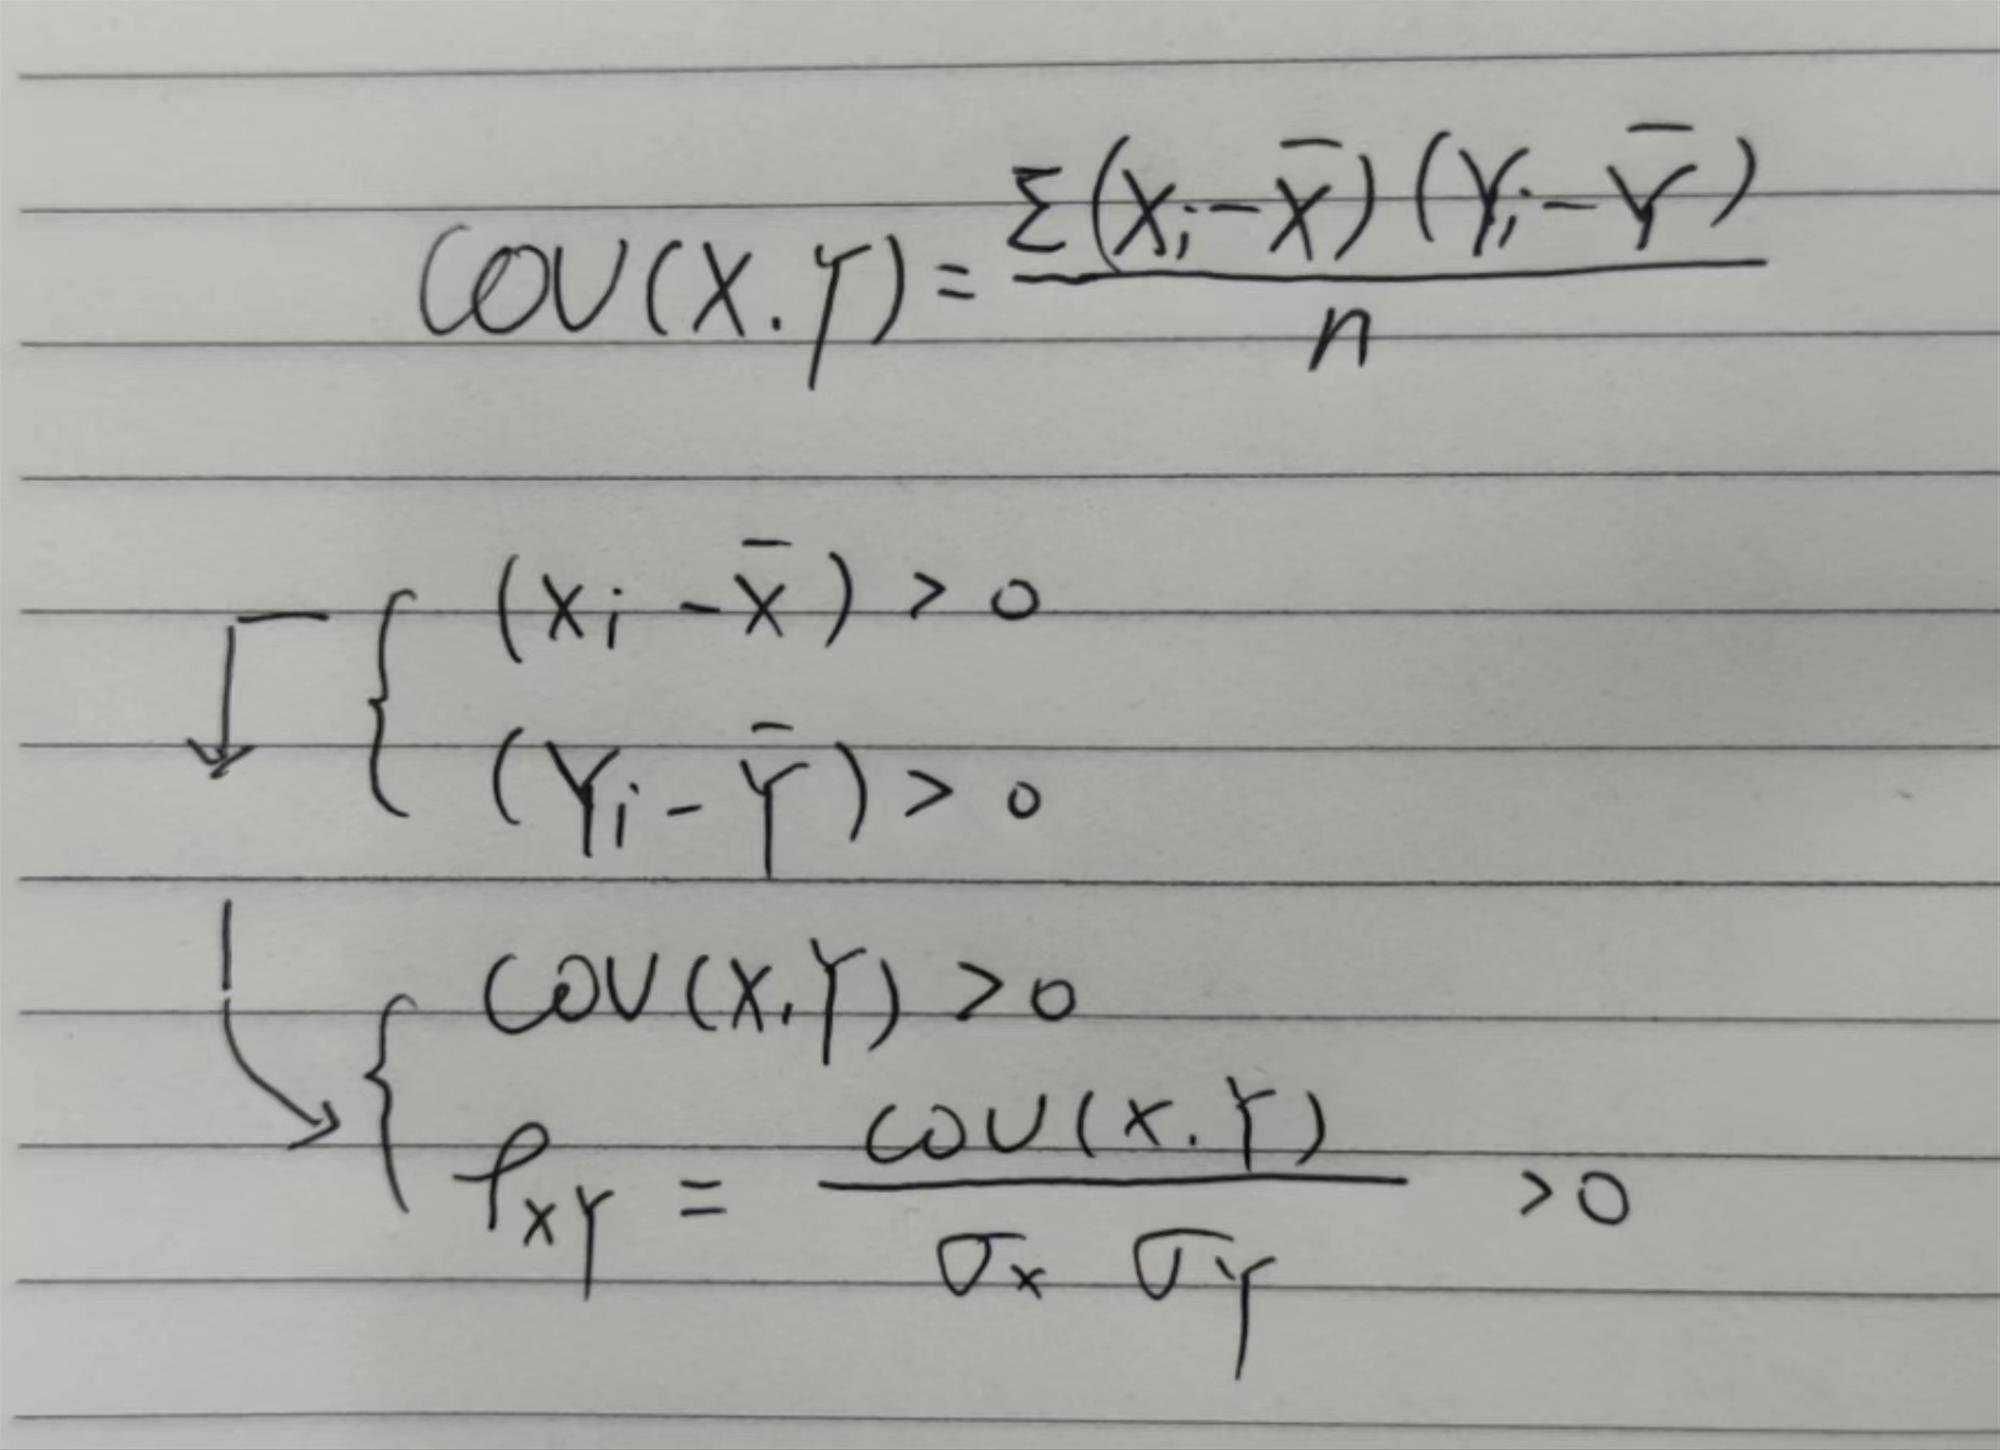 COV(X.Y) = Σ(Xi-X̅)(Yi-Y̅) / n
(Xi-X̅) > 0
(Yi-Y̅) > 0
COV(X.Y) > 0
ρXY = COV(X.Y) / σX σY > 0